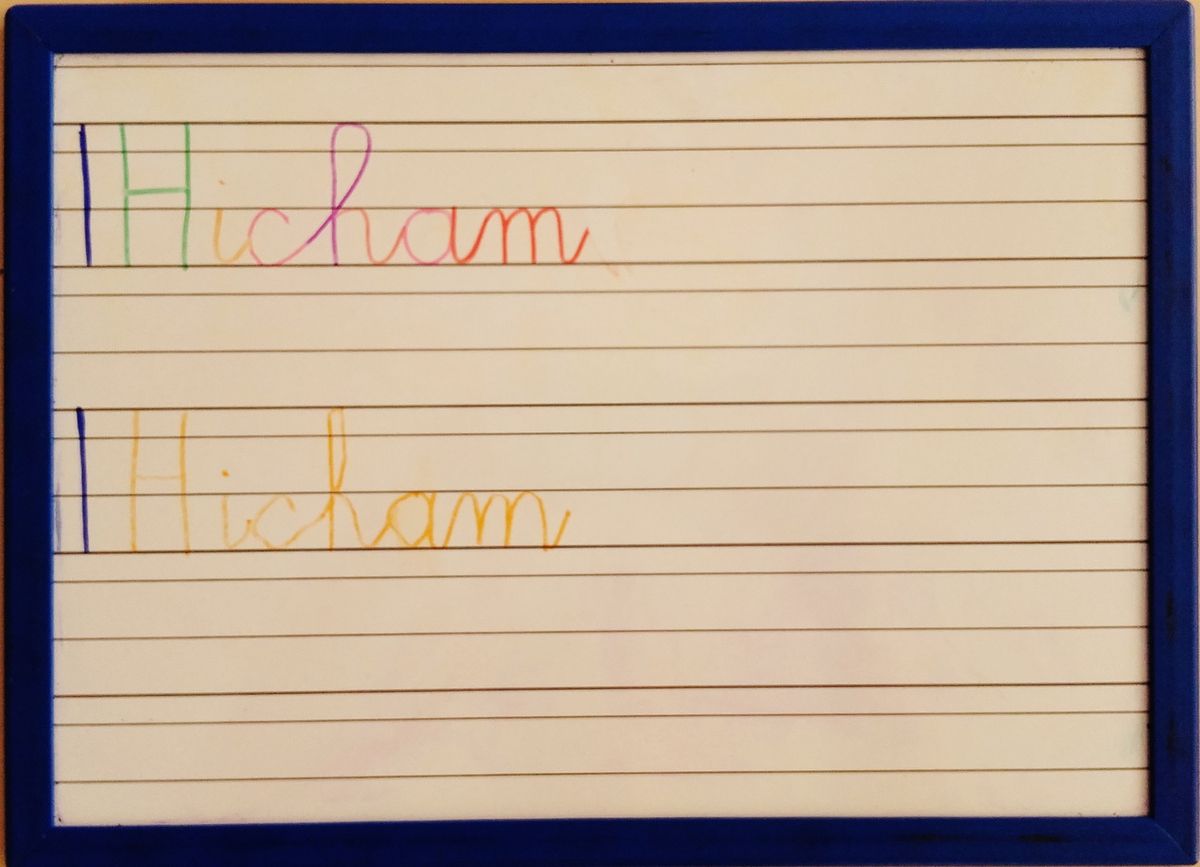 Hicham
Hicham